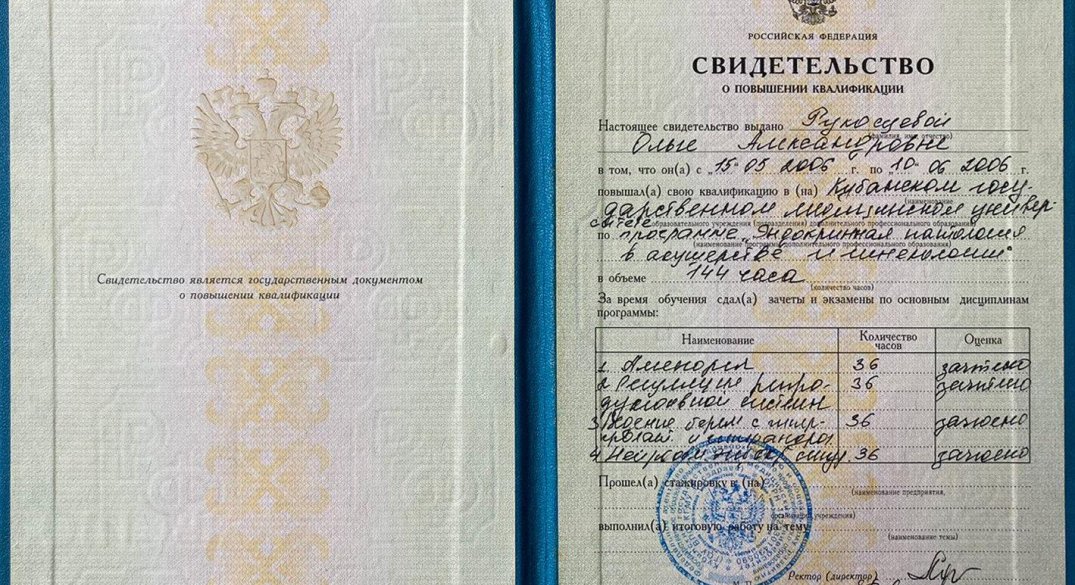 Свидетельство является государственным документом
о повышении квалификации
РОССИЙСКАЯ ФЕДЕРАЦИЯ
СВИДЕТЕЛЬСТВО
О ПОВЫШЕНИИ КВАЛИФИКАЦИИ
Настоящее свидетельство выдано Рукосуевой
(фамилия, имя, отчество)
Ольге Александровне
в том, что он(а) с „15“ 05 2006 г. по „10“ 06 2006 г.
повышал(а) свою квалификацию в (на) Кубанском госу-
(наименование
дарственном медицинском универ-
ситете
образовательного учреждения (подразделения) дополнительного профессионального образования)
по программе „Эндокринная патология
(наименование программы дополнительного профессионального образования)
в акушерстве и гинекологии“
в объеме 144 часа
(количество часов)
За время обучения сдал(а) зачеты и экзамены по основным дисциплинам
программы:
Наименование Количество часов Оценка
1. Аменорея 36 зачтено
2. Регуляция репро- 36 зачтено
дуктивной систем
3. 36 зачтено
4. 36 зачтено
Прошел(а) стажировку в (на)
(наименование предприятия,
организации, учреждения)
выполнил(а) итоговую работу на тему
(наименование темы)
Ректор (директор)